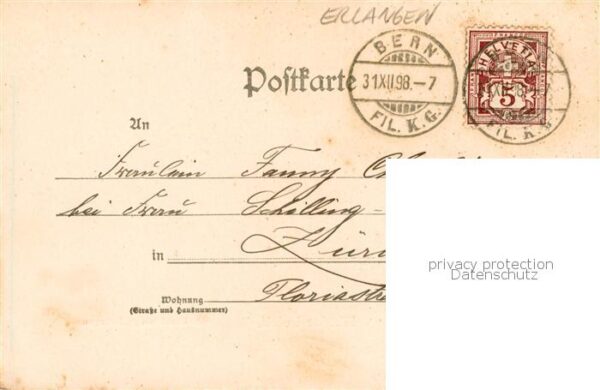 ERLANGEN
BERN
31 XII 98. – 7
FIL. K. G.
HELVETIA
5
XII 98 – 7
FIL. K. G.
Postkarte
An
Fräulein Fanny
bei Frau Schilling-
in
Wohnung
(Straße und Hausnummer)
privacy protection
Datenschutz